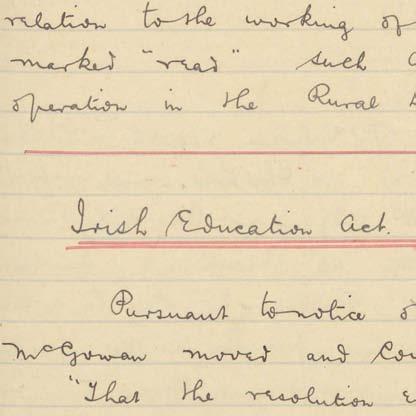 relation to the working of
marked "read" such
operation in the Rural
Irish Education Act.
Pursuant to notice
McGowan moved and Cou
"That the resolution